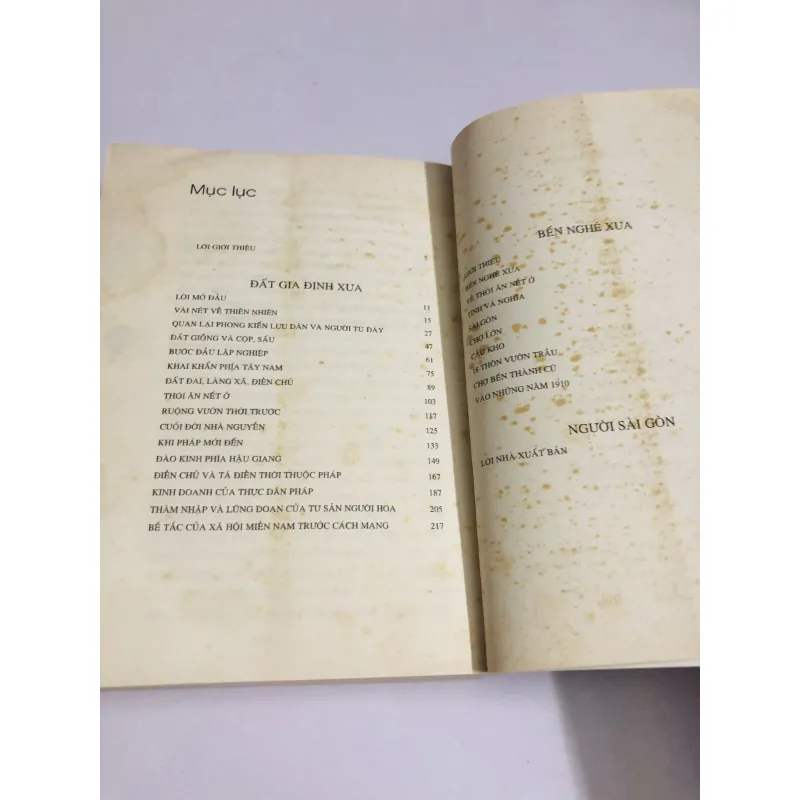 Mục lục
LỜI GIỚI THIỆU
ĐẤT GIA ĐỊNH XƯA
LỜI MỞ ĐẦU 11
VÀI NÉT VỀ THIÊN NHIÊN 15
QUAN LẠI PHONG KIẾN LƯU DÂN VÀ NGƯỜI TÙ ĐÀY 27
ĐẤT GIỒNG VÀ CỌP, SẤU 47
BƯỚC ĐẦU LẬP NGHIỆP 61
KHAI KHẨN PHÍA TÂY NAM 75
ĐẤT ĐAI, LÀNG XÃ, ĐIỀN CHỦ 89
THÓI ĂN NẾT Ở 103
RUỘNG VƯỜN THỜI TRƯỚC 117
CUỐI ĐỜI NHÀ NGUYỄN 125
KHI PHÁP MỚI ĐẾN 133
ĐÀO KINH PHÍA HẬU GIANG 149
ĐIỀN CHỦ VÀ TÁ ĐIỀN THỜI THUỘC PHÁP 167
KINH DOANH CỦA THỰC DÂN PHÁP 187
THÂM NHẬP VÀ LŨNG ĐOẠN CỦA TƯ SẢN NGƯỜI HOA 205
BẾ TẮC CỦA XÃ HỘI MIỀN NAM TRƯỚC CÁCH MẠNG 217
BẾN NGHÉ XƯA
GIỚI THIỆU
BẾN NGHÉ XƯA
VỀ THÓI ĂN NẾT Ở
TÌNH VÀ NGHĨA
SÀI GÒN
CHỢ LỚN
CẦU KHO
18 THÔN VƯỜN TRẦU
CHỢ BẾN THÀNH CŨ
VÀO NHỮNG NĂM 1910
NGƯỜI SÀI GÒN
LỜI NHÀ XUẤT BẢN